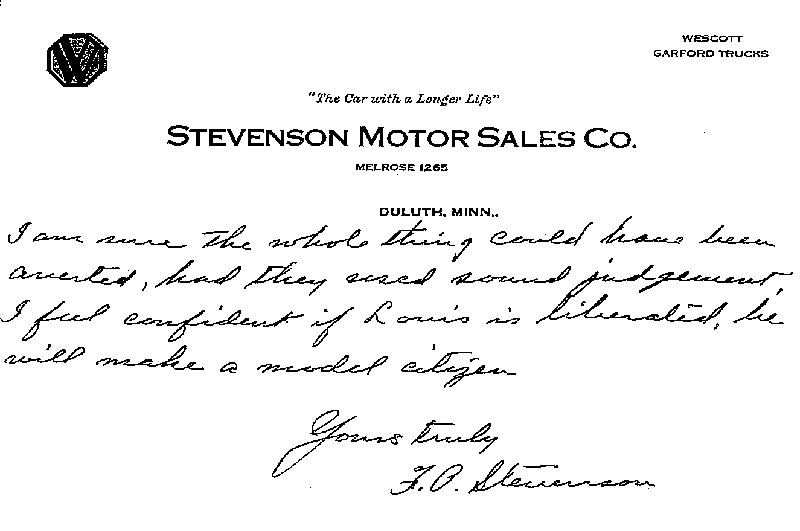 W
WESCOTT
GARFORD TRUCKS
"The Car with a Longer Life"
STEVENSON MOTOR SALES CO.
MELROSE 1265
DULUTH, MINN.,
I am sure the whole thing could have been
averted, had they used sound judgement,
I feel confident if Louis is liberated, he
will make a model citizen
Yours truly
F.O. Stevenson